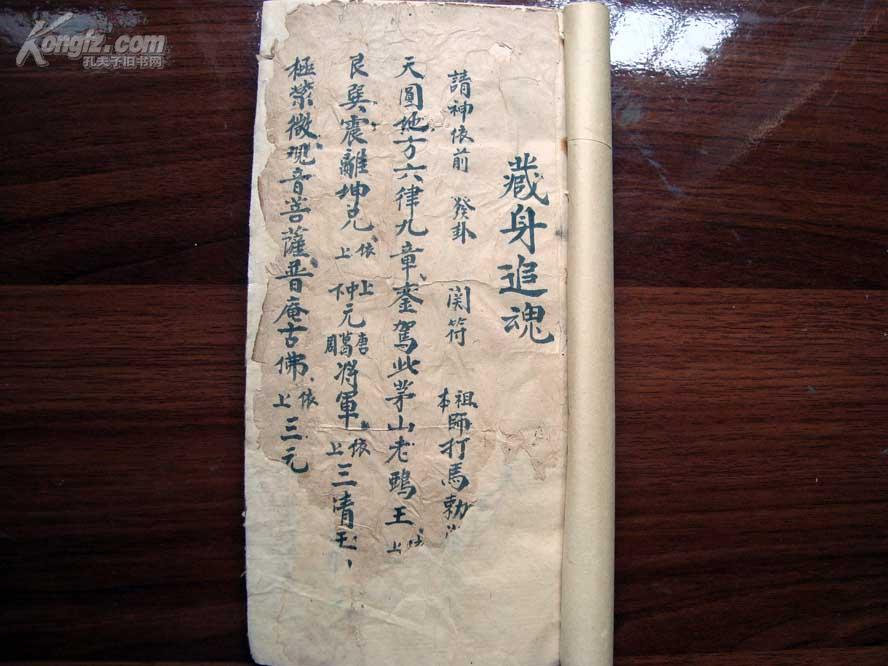 Kongfz.com
孔夫子旧书网
藏身追魂
請神依前 發卦 関符 祖本師打馬勅
天圓地方六律九章銮駕此茅山老鵶王依上
艮巽震離坤兑依上 上仲元唐葛周将軍依上三清玉
極紫微观音菩薩普庵古佛依上三元